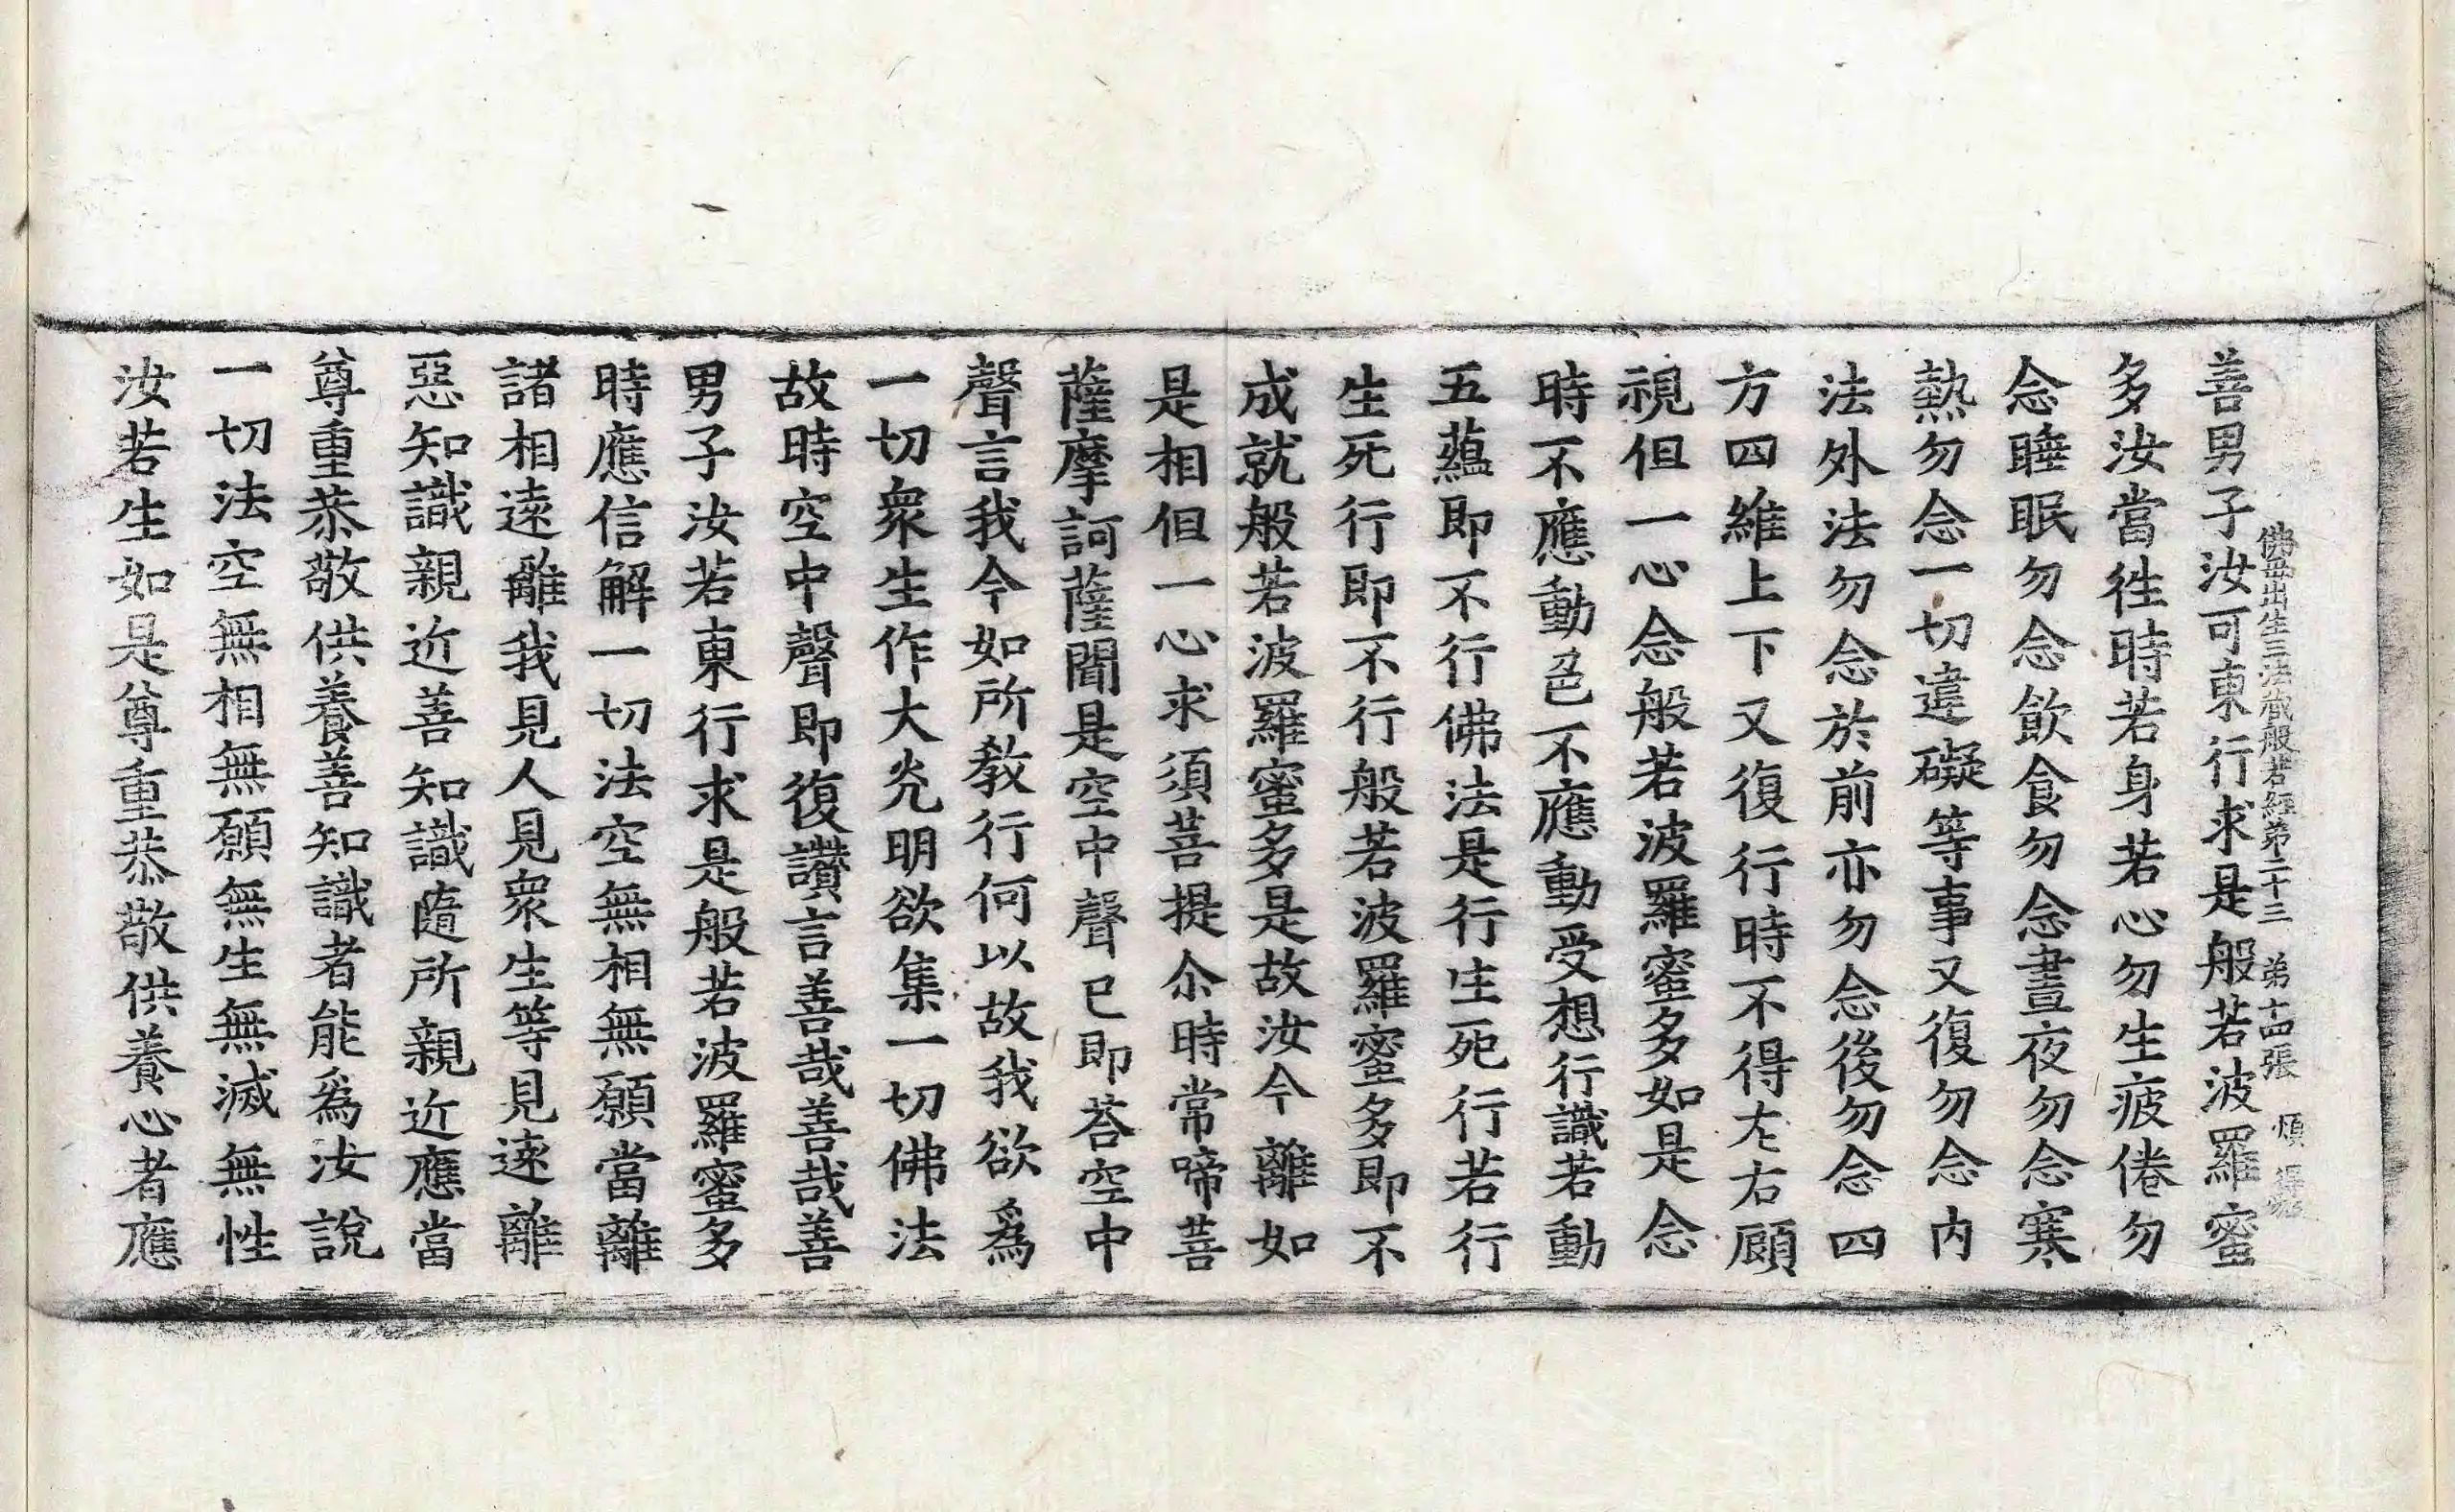 佛母出生三法藏般若經第二十三 第十四張 煩
善男子汝可東行求是般若波羅蜜
多汝當徃時若身若心勿生疲倦勿
念睡眠勿念飲食勿念晝夜勿念寒
熱勿念一切違礙等事又復勿念内
法外法勿念於前亦勿念後勿念四
方四維上下又復行時不得左右顧
視但一心念般若波羅蜜多如是念
時不應動色不應動受想行識若動
五蘊即不行佛法是行生死行若行
生死行即不行般若波羅蜜多即不
成就般若波羅蜜多是故汝今離如
是相但一心求須菩提尒時常啼菩
薩摩訶薩聞是空中聲已即荅空中
聲言我今如所教行何以故我欲爲
一切衆生作大光明欲集一切佛法
故時空中聲即復讚言善哉善哉善
男子汝若東行求是般若波羅蜜多
時應信解一切法空無相無願當離
諸相遠離我見人見衆生等見遠離
惡知識親近善知識隨所親近應當
尊重恭敬供養善知識者能爲汝說
一切法空無相無願無生無滅無性
汝若生如是尊重恭敬供養心者應